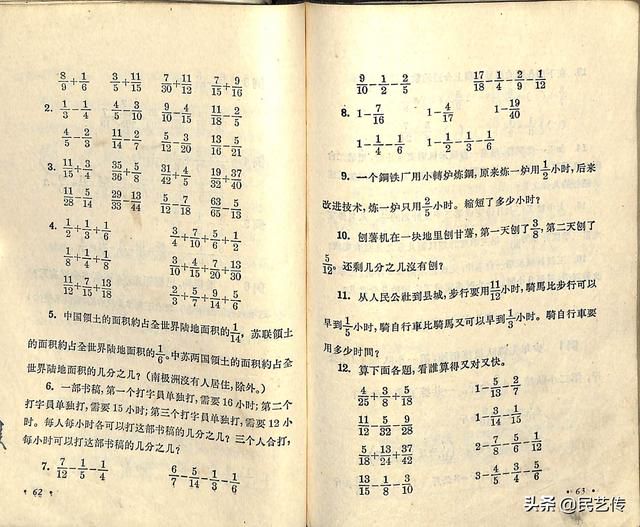 8/9+1/6 3/5+11/15 7/30+11/12 7/15+9/16
2. 1/3-1/4 4/5-3/10 9/10-4/15 11/18-2/5
4/5-2/3 11/14-2/7 5/12-3/20 13/16-5/21
3. 11/15+3/4 35/36+5/8 31/42+4/5 19/32+37/40
11/28-5/14 29/33-13/44 5/12-7/18 63/65-5/13
4. 1/2+1/3+1/6 3/4+7/10+5/6+1/2
1/8+1/4+1/8 3/10+4/15+7/20+13/30
11/12+7/15+13/18 2/3+5/7+9/14+5/6
5. 中国領土的面积約占全世界陆地面积的1/14, 苏联領土
的面积約占全世界陆地面积的1/6。中苏两国領土的面积約占全
世界陆地面积的几分之几? (南极洲沒有人居住, 除外。)
6. 一部书稿, 第一个打字員单独打, 需要16小时; 第二个
打字員单独打, 需要15小时; 第三个打字員单独打, 需要12小
时。每人每小时各可以打这部书稿的几分之几? 三个人合打,
每小时可以打这部书稿的几分之几?
7. 7/12-1/5-1/4 6/7-5/14-1/3-1/6
• 62 •
9/10-1/2-2/5 17/18-1/4-2/9-1/12
8. 1-7/16 1-4/17 1-19/40
1-1/4-1/6 1-1/2-1/3-1/6
9. 一个鋼铁厂用小轉炉炼鋼, 原来炼一炉用1/2小时, 后来
改进技术, 炼一炉只用2/5小时。縮短了多少小时?
10. 刨薯机在一块地里刨甘薯, 第一天刨了3/8, 第二天刨了
5/12。还剩几分之几沒有刨?
11. 从人民公社到县城, 步行要用11/12小时, 騎馬比步行可以
早到1/5小时, 騎自行車比騎馬又可以早到1/3小时。騎自行車要
用多少时間?
12. 算下面各題, 看誰算得又对又快。
4/25+3/8+5/18 1-5/13-2/7
11/12-5/32-9/28 1-3/14-1/15
5/18+13/24+37/42 2-7/8-5/6-1/12
13/15-1/8-3/10 3-4/5-3/4-5/6
• 63 •
头条 @民艺传